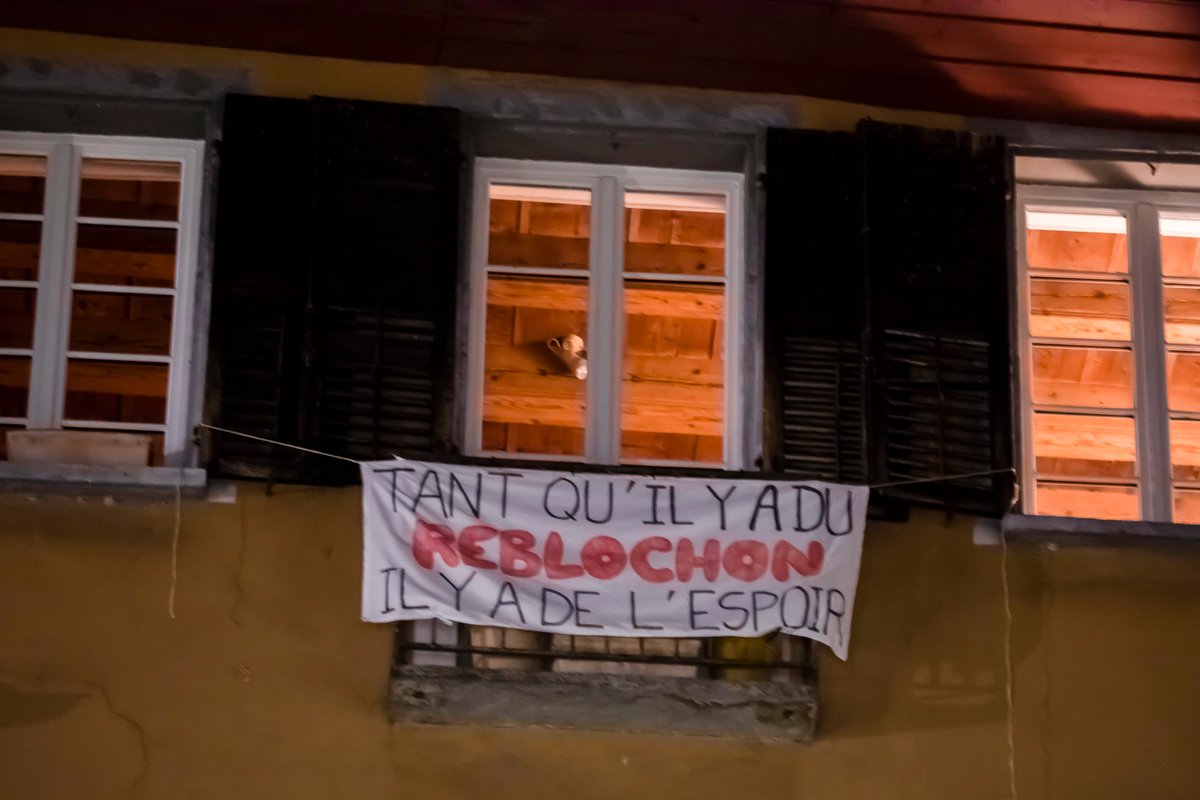 TANT QU'IL Y A DU
REBLOCHON
IL Y A DE L'ESPOIR